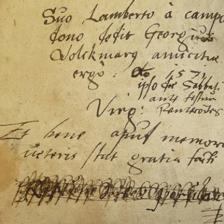 Suo Lamberto à campo
dono dedit Georgius
Volckmarus amicitiæ
ergò: Aõ 1571
ipso die Sabbati
ante festum
Virg:
Et bene apud memores
veteris stat gratia facti